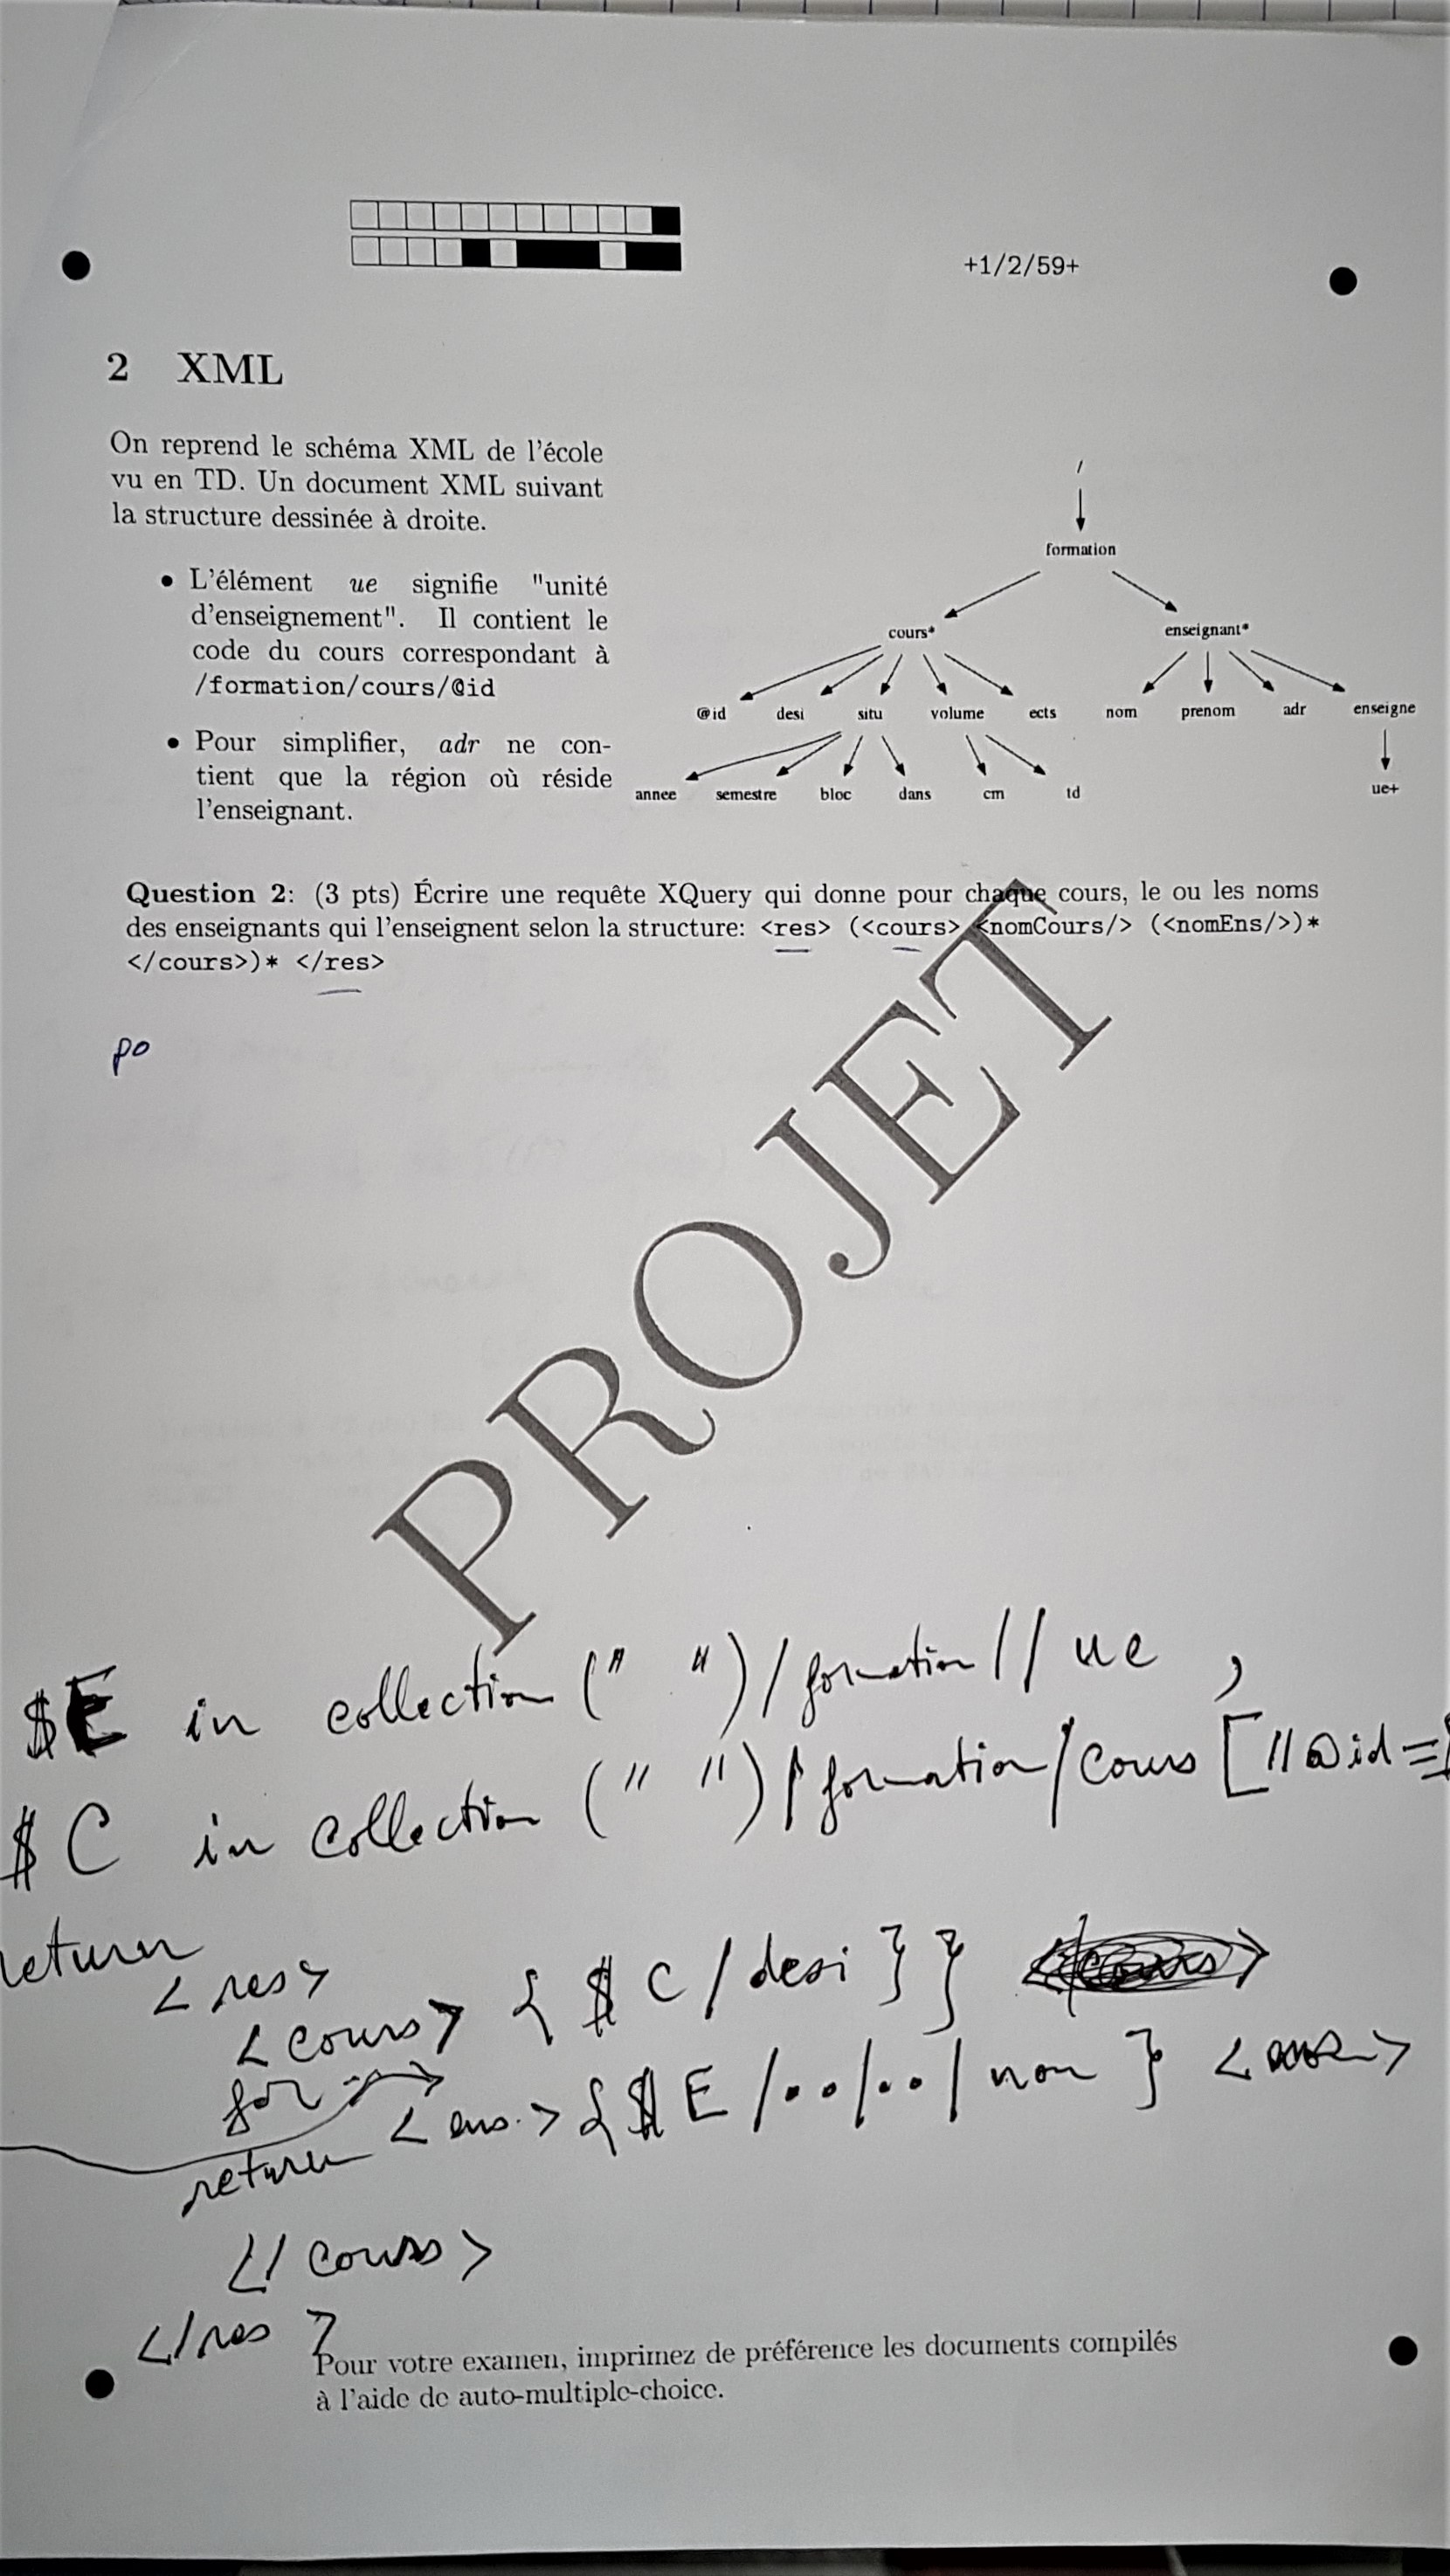 +1/2/59+
2 XML
On reprend le schéma XML de l'école
vu en TD. Un document XML suivant
la structure dessinée à droite.
• L'élément ue signifie "unité
d'enseignement". Il contient le
code du cours correspondant à
/formation/cours/@id
• Pour simplifier, adr ne con-
tient que la région où réside
l'enseignant.
/
formation
cours* enseignant*
@id desi situ volume ects nom prenom adr enseigne
annee semestre bloc dans cm td ue+
Question 2: (3 pts) Écrire une requête XQuery qui donne pour chaque cours, le ou les noms
des enseignants qui l'enseignent selon la structure: <res> (<cours> <nomCours/> (<nomEns/>)*
</cours>)* </res>
po
PROJET
$E in collection (" ")/formation//ue ,
$C in collection (" ")/formation/cours [//@id=
return
<res>
<cours> {$C/desi}}
for
<ens.> {$E/../../nom}
return
</cours>
</res>
Pour votre examen, imprimez de préférence les documents compilés
à l'aide de auto-multiple-choice.